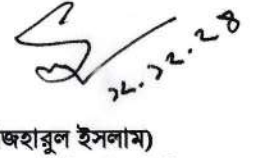 ১২.১২.২৪
জহারুল ইসলাম)